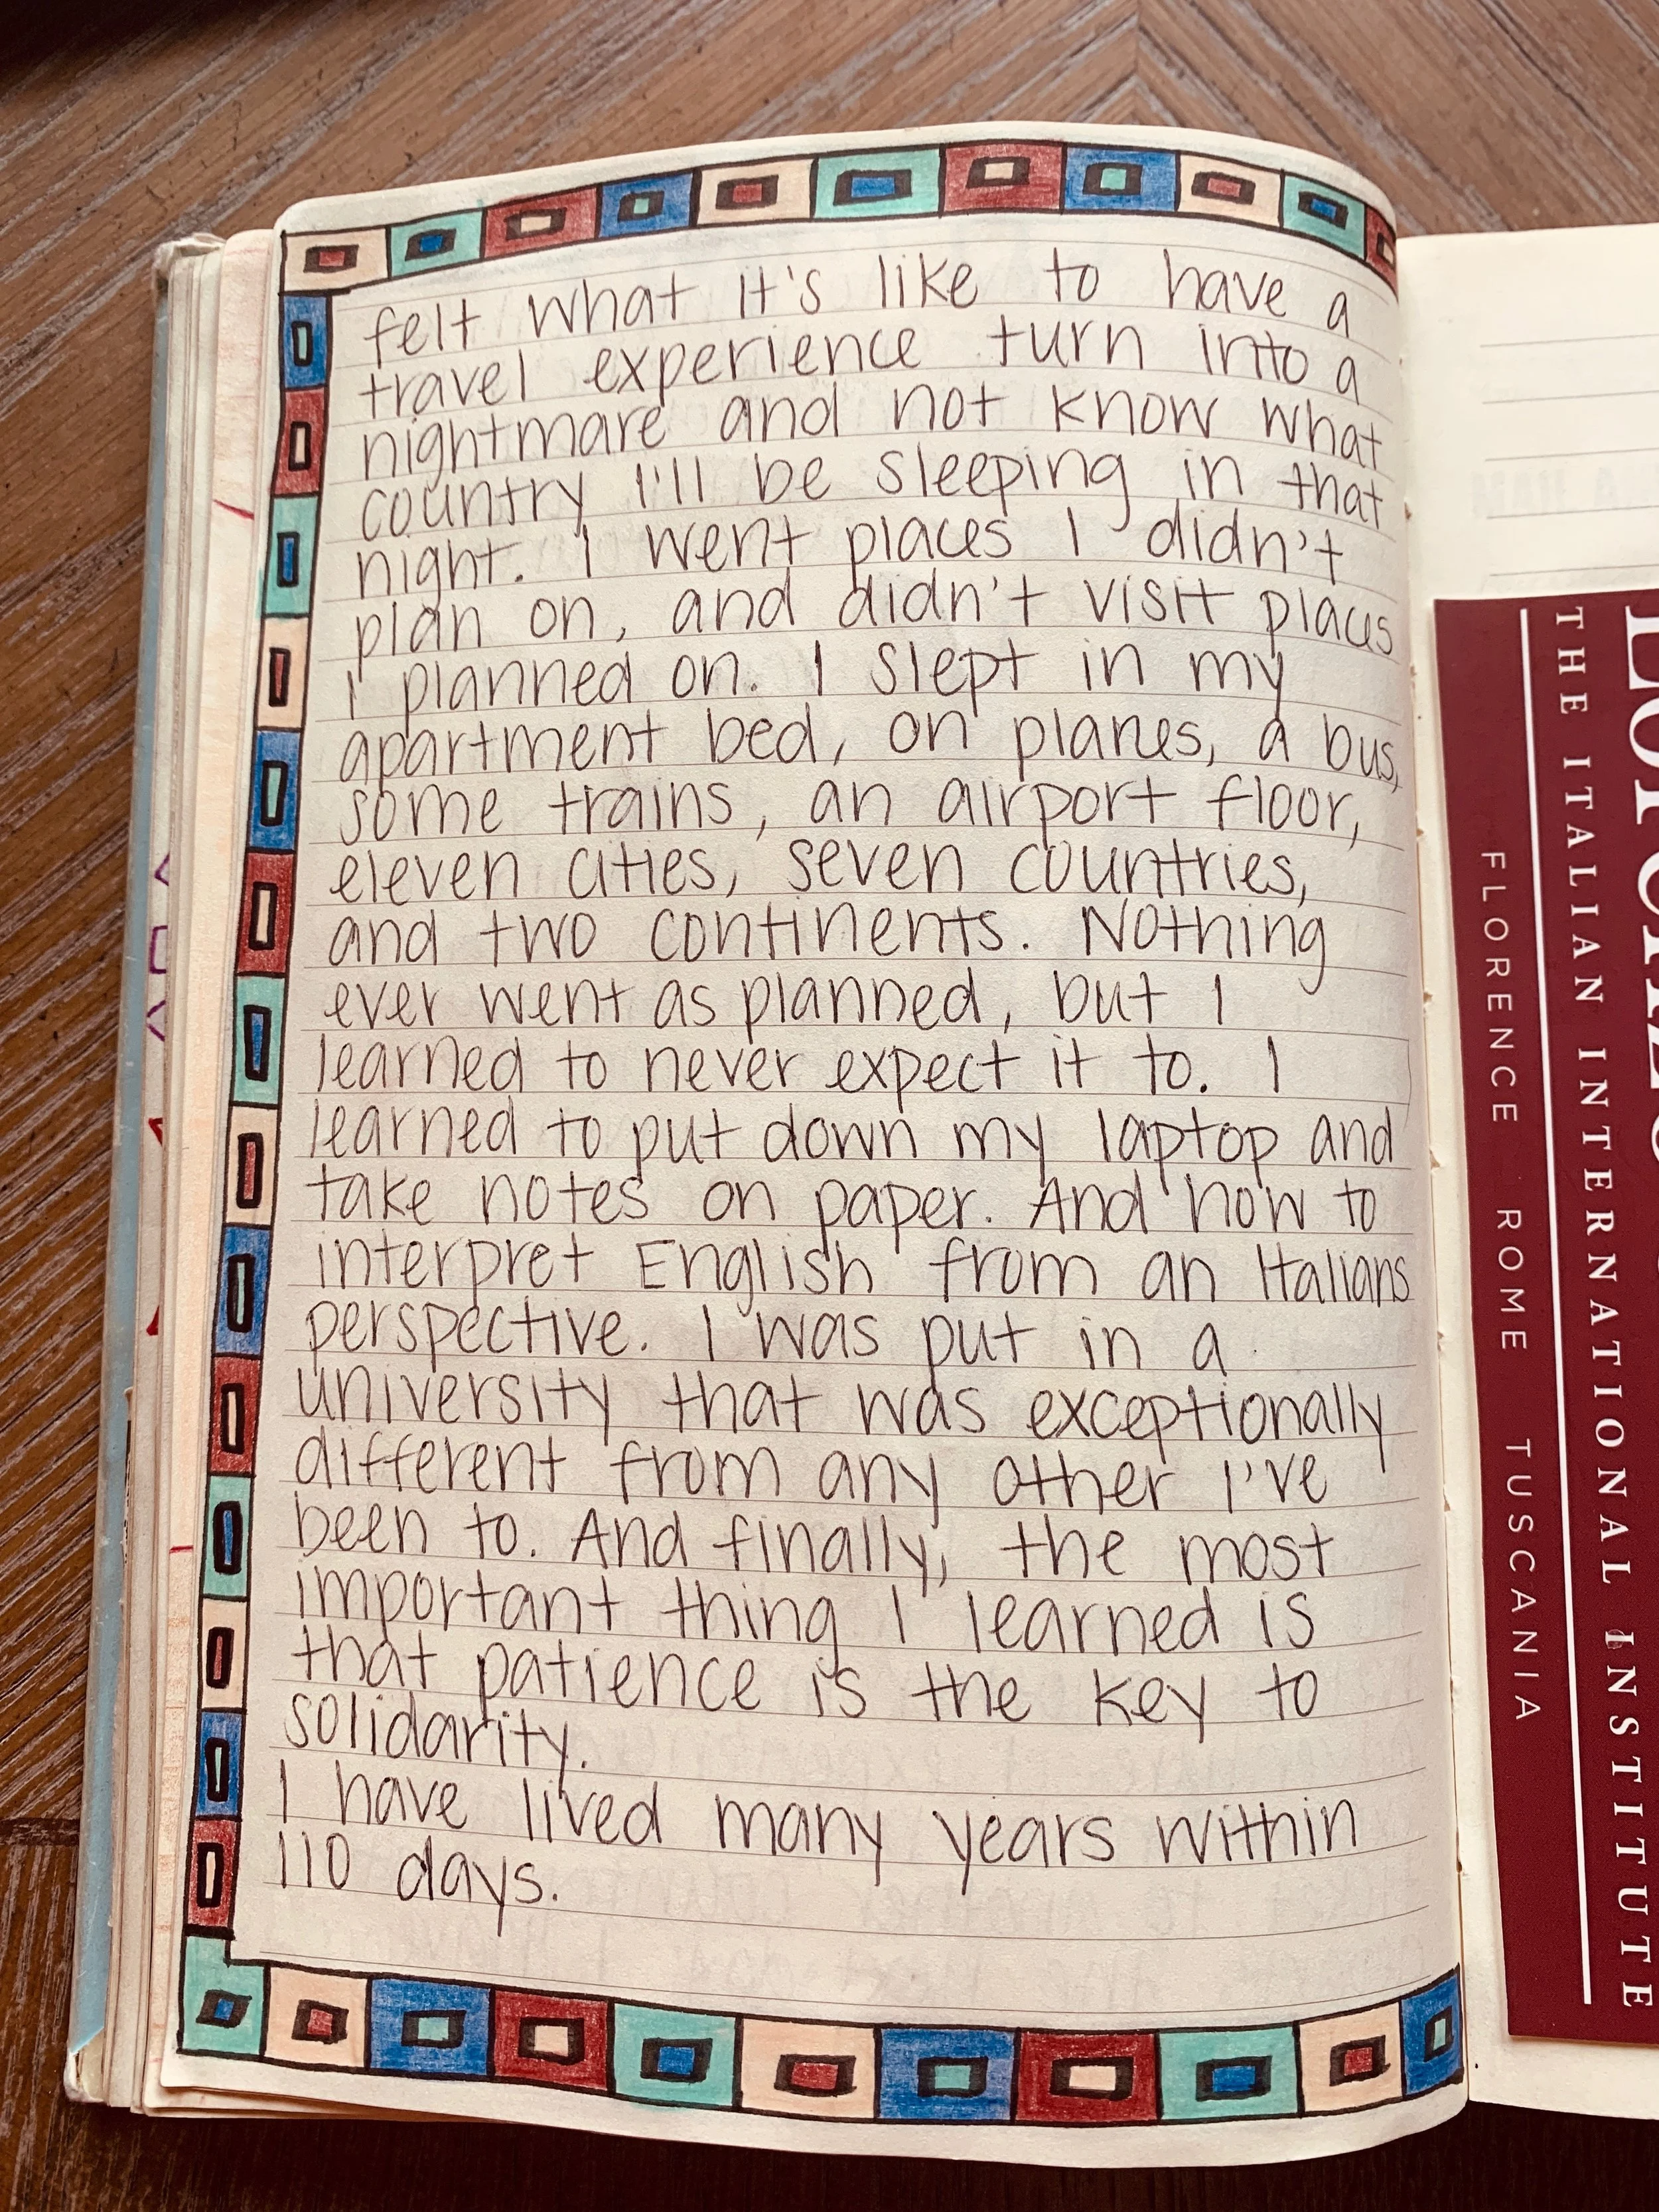 felt what it's like to have a
travel experience turn into a
nightmare and not know what
country I'll be sleeping in that
night. I went places I didn't
plan on, and didn't visit places
I planned on. I slept in my
apartment bed, on planes, a bus,
some trains, an airport floor,
eleven cities, seven countries,
and two continents. Nothing
ever went as planned, but I
learned to never expect it to. I
learned to put down my laptop and
take notes on paper. And how to
interpret English from an Italians
perspective. I was put in a
university that was exceptionally
different from any other I've
been to. And finally, the most
important thing I learned is
that patience is the key to
solidarity.
I have lived many years within
110 days.
THE ITALIAN INTERNATIONAL INSTITUTE
FLORENCE ROME TUSCANIA